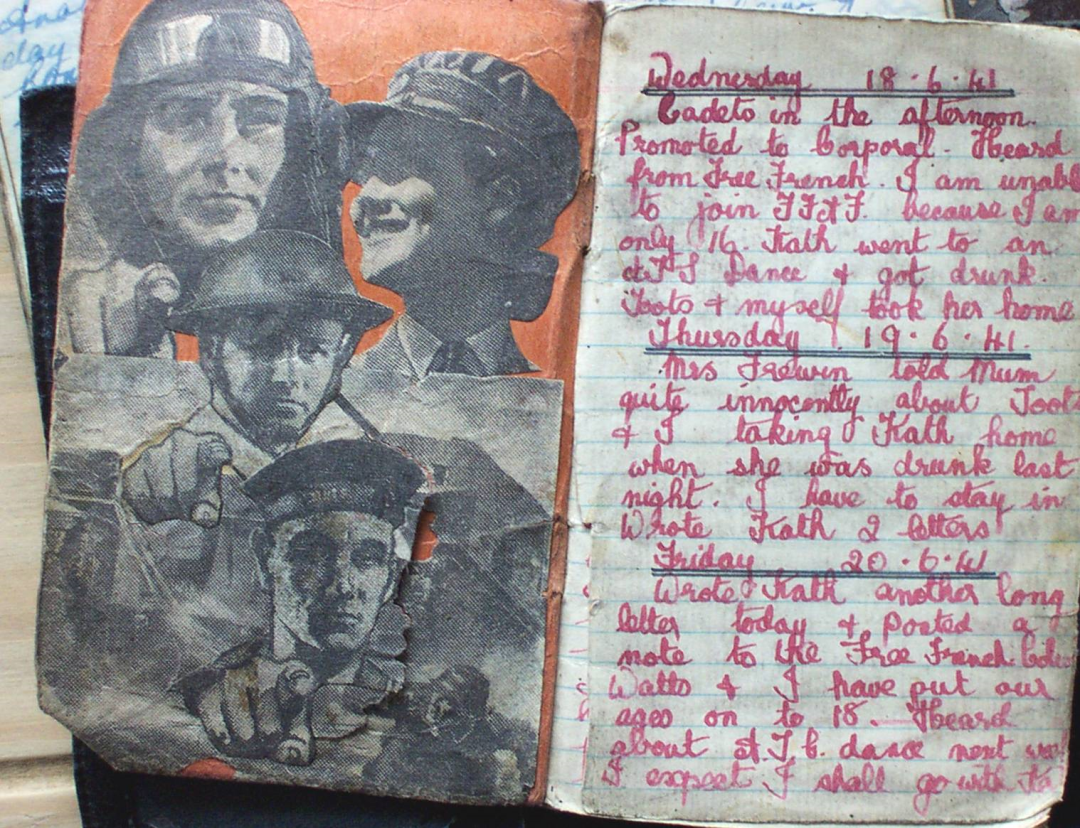 Wednesday 18.6.41
Cadets in the afternoon.
Promoted to Corporal. Heard
from Free French. I am unabl
to join F.F.A.F. because I am
only 16. Kath went to an
A.T.S Dance & got drunk.
Toots & myself took her home
Thursday 19.6.41.
Mrs Frewin told Mum
quite innocently about Toots
& I taking Kath home
when she was drunk last
night. I have to stay in
Wrote Kath 2 letters
Friday 20.6.41
Wrote Kath another long
letter today & posted a
note to the Free French
Watts & I have put our
ages on to 18. Heard
about A.T.C. dance next
I expect I shall go with